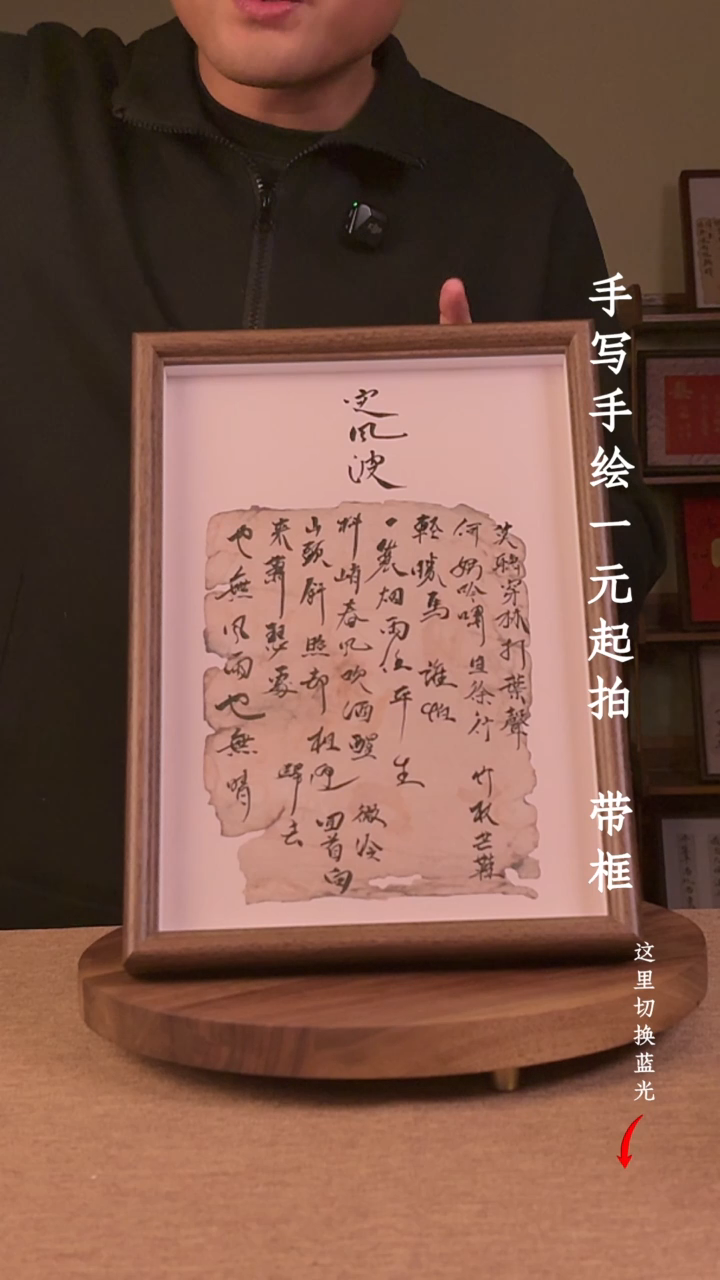 定风波
莫聽穿林打葉聲
何妨吟嘯且徐行 竹杖芒鞋
輕勝馬 誰怕
一簑烟雨任平生
料峭春风吹酒醒 微冷
山頭斜照却相迎 回首向
来蕭瑟處 歸去
也無风雨也無晴
手写手绘一元起拍 带框
这里切换蓝光